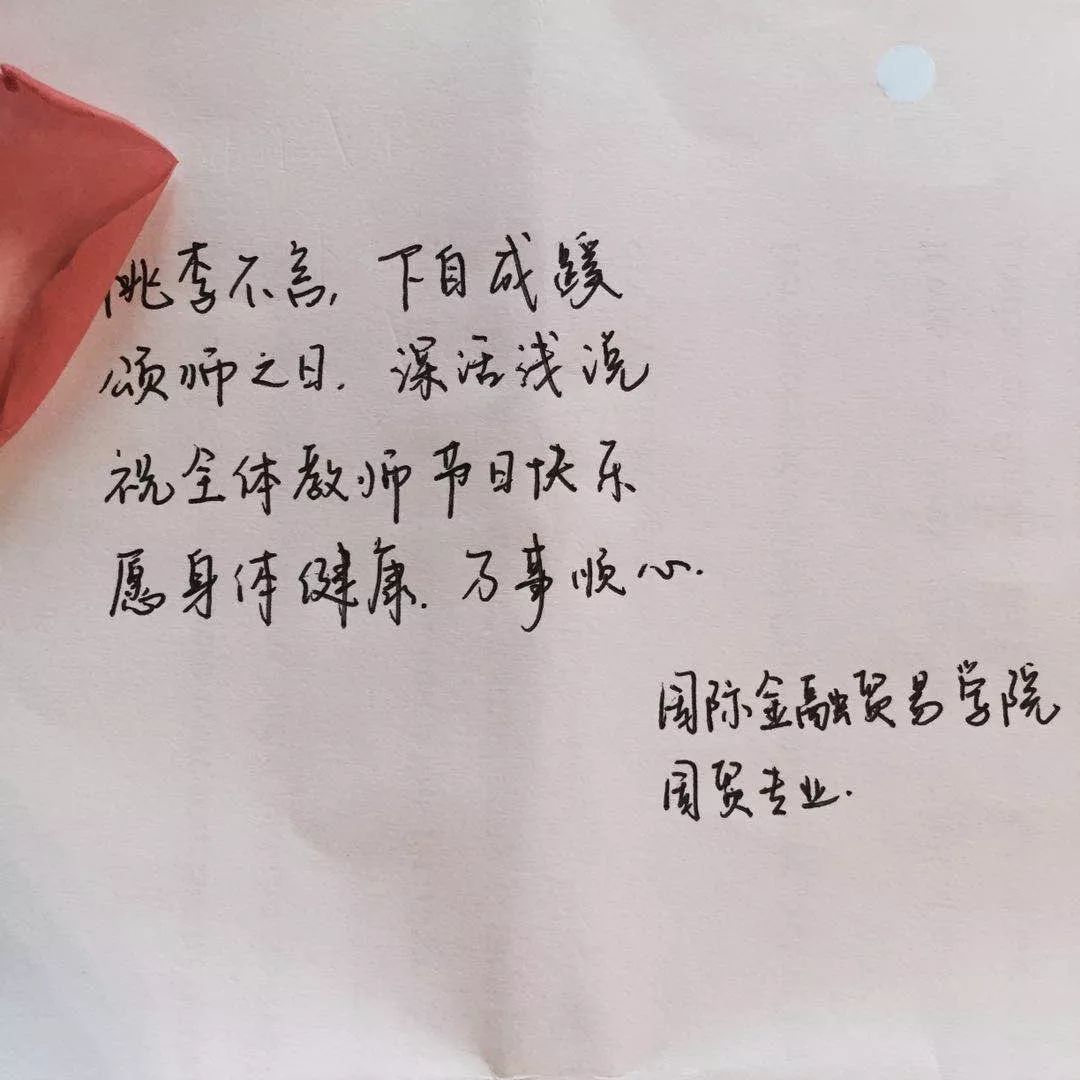 桃李不言,下自成蹊
颂师之日.深活浅说
祝全体教师节日快乐
愿身体健康.万事顺心.
国际金融贸易学院
国贸专业.